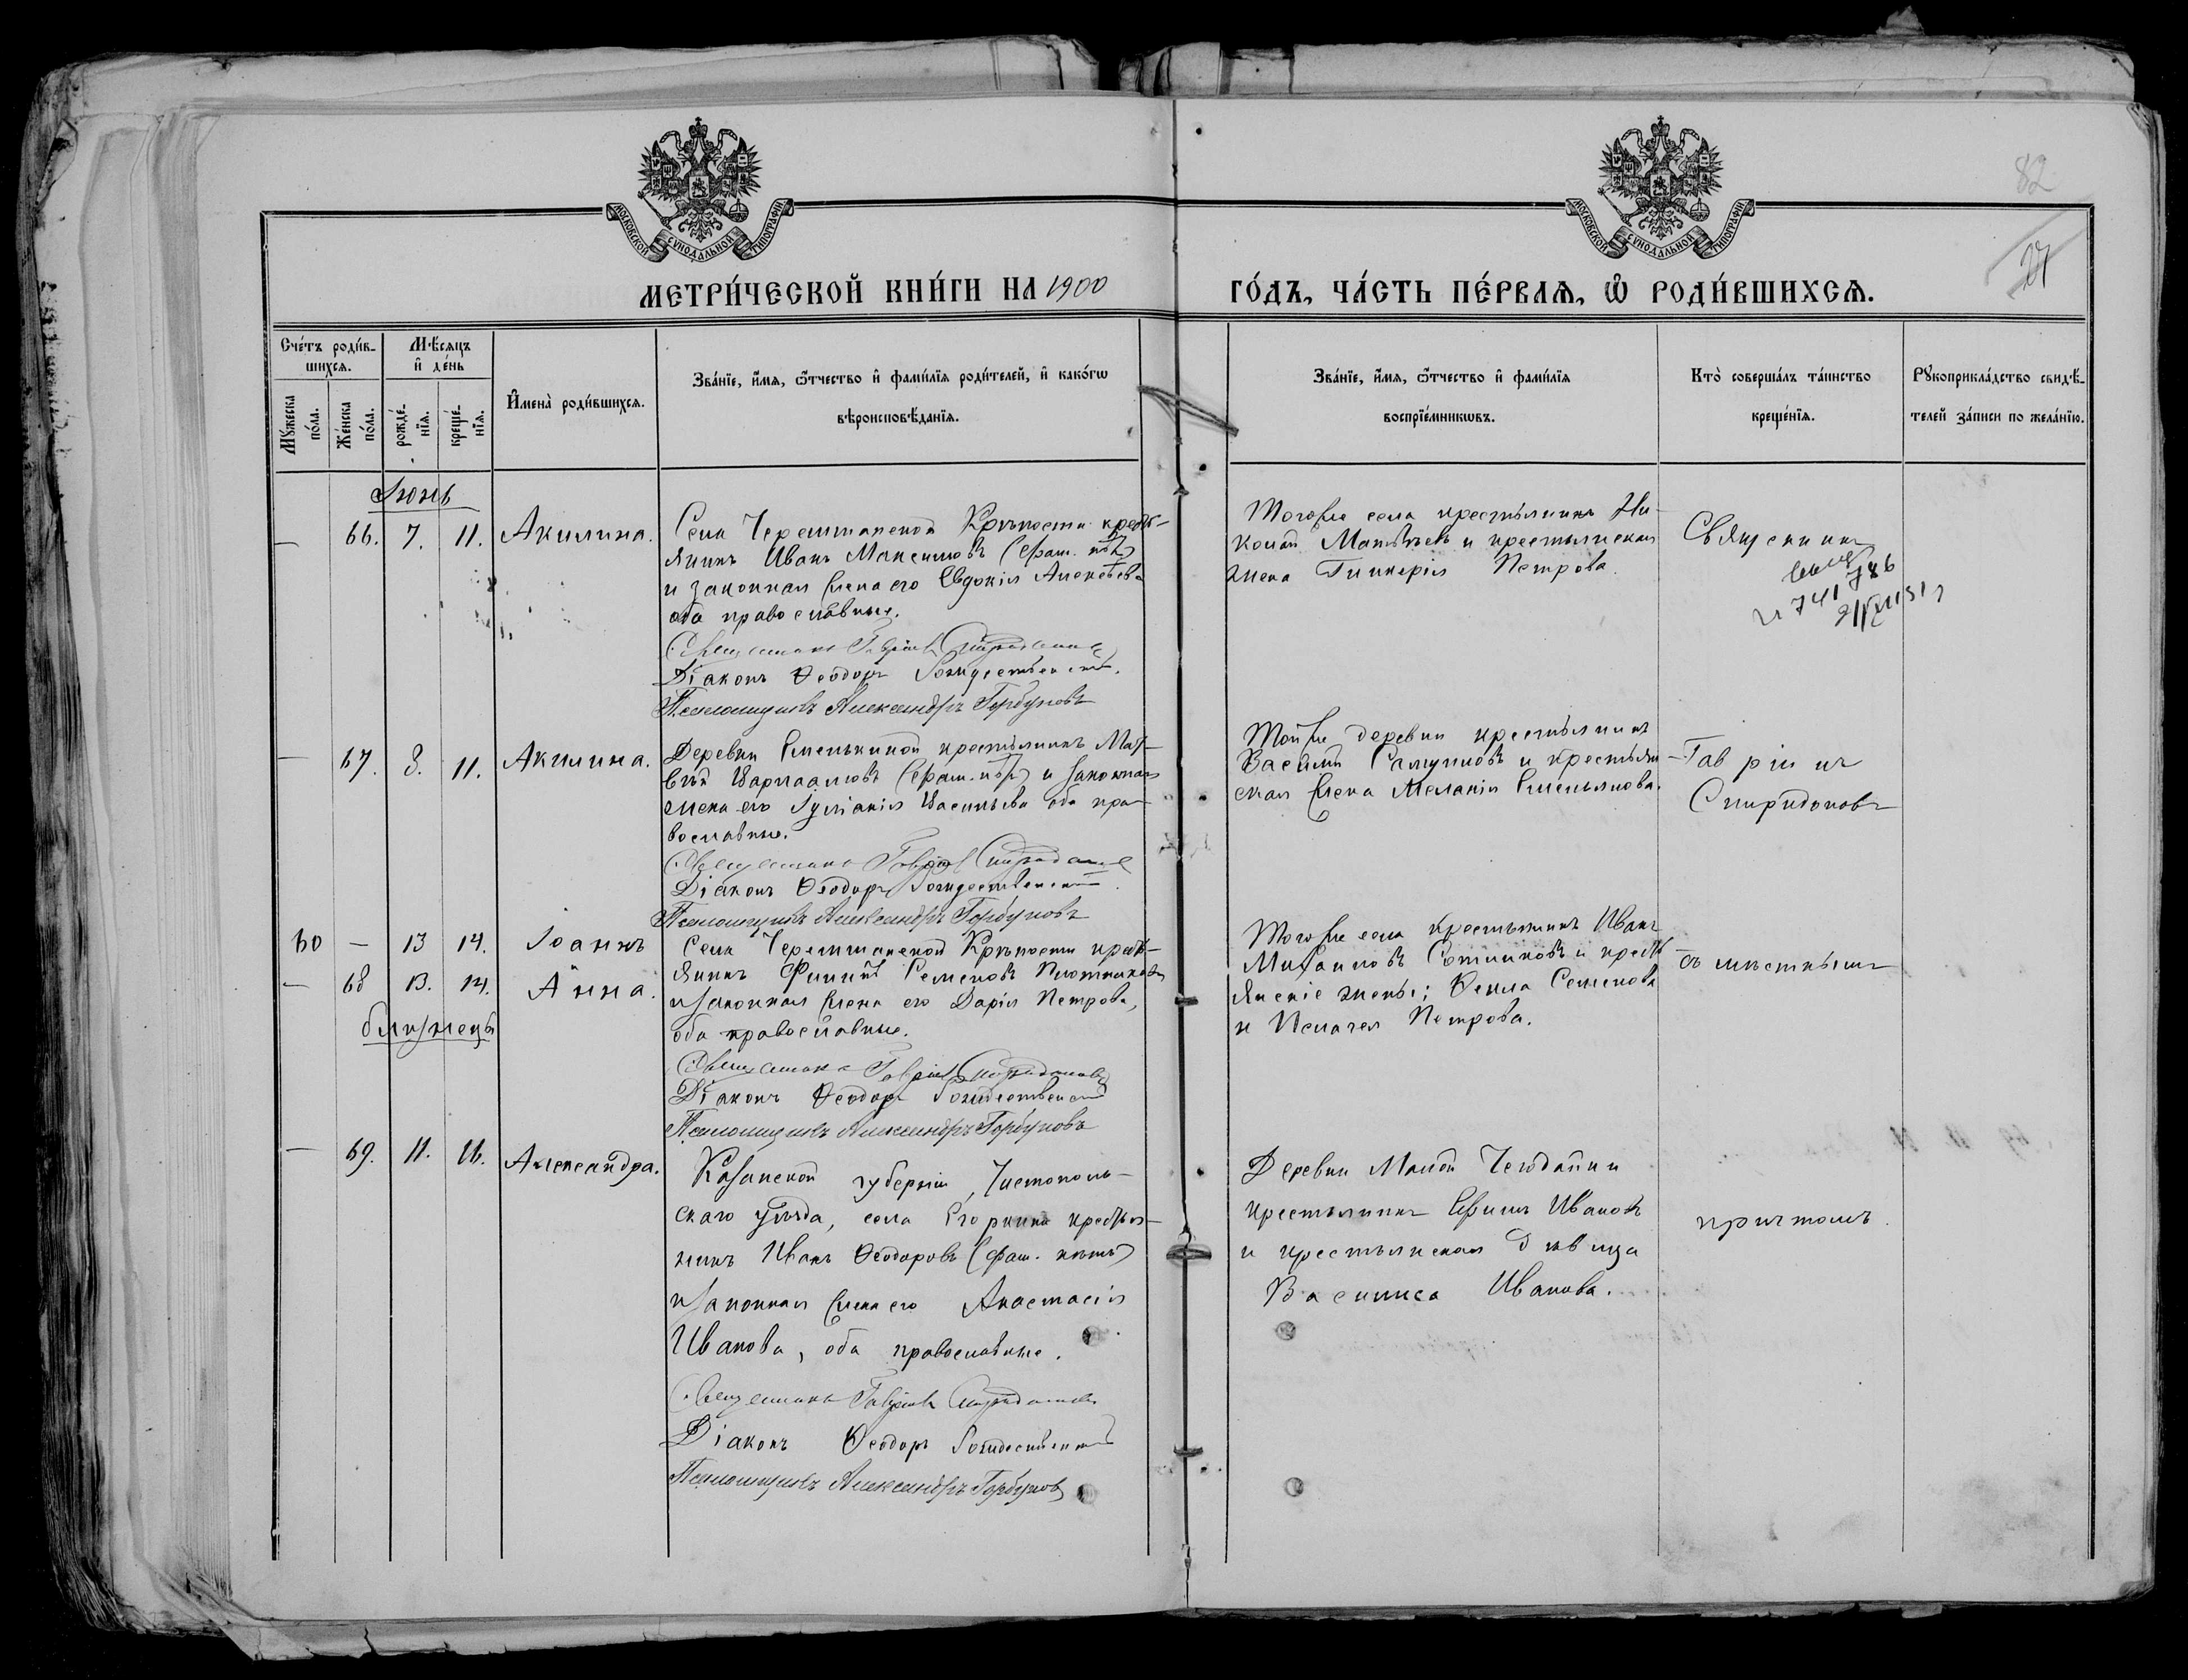 82
27
МОСКОВСКОЙ СѴНОДАЛЬНОЙ ТИПОГРАФІИ
МОСКОВСКОЙ СѴНОДАЛЬНОЙ ТИПОГРАФІИ
МЕТРИ́ЧЕСКОЙ КНИ́ГИ НА 1900 ГО́ДЪ, ЧА́СТЬ ПЕ́РВАѦ, Ѡ҆ РОДИ́ВШИХСѦ.
Сче́тъ роди́в-
шихсѧ.
Мꙋ́жеска по́ла.
Же́нска по́ла.
Мѣ́сѧцъ
и҆ де́нь
рожде́-
нїѧ.
креще́-
нїѧ.
И҆мена̀ роди́вшихсѧ.
Зва́нїе, и҆́мѧ, ѻ҆́тчество и҆ фами́лїѧ роди́телей, и҆ како́гѡ
вѣроисповѣ́данїѧ.
Зва́нїе, и҆́мѧ, ѻ҆́тчество и҆ фами́лїѧ
воспрїе́мникѡвъ.
Кто̀ соверша́лъ та́инство
креще́нїѧ.
Рꙋкоприкла́дство свидѣ́-
телей за́писи по жела́нїю.
Іюнь
— 66. 7. 11. Акилина.
Села Черемшанской Крѣпости кресть-
янинъ Иванъ Максимовъ (фам. нѣтъ)
и законная жена его Евдокія Алексѣева
оба православные.
Священникъ Гавріилъ Спиридоновъ
Діаконъ Ѳеодоръ Рождественскій.
Псаломщикъ Александръ Горбуновъ
Того же села крестьянинъ Ни-
колай Матвѣевъ и крестьянская
жена Гликерія Петрова.
Священникъ
— 67. 8. 11. Акилина.
Деревни Емелькиной крестьянинъ Мат-
вѣй Варлаамовъ (фам. нѣтъ) и законная
жена его Іуліанія Васильева оба пра-
вославные.
Священникъ Гавріилъ Спиридоновъ
Діаконъ Ѳеодоръ Рождественскій.
Псаломщикъ Александръ Горбуновъ
Той же деревни крестьянинъ
Василій Самуиловъ и крестьян-
ская жена Меланія Емельянова.
Гавріилъ
Спиридоновъ
60 — 13 14. Іоаннъ
— 68 13. 14. Анна.
близнецы
Села Черемшанской Крѣпости кресть-
янинъ Филиппъ Семеновъ Плотниковъ
и законная жена его Дарія Петрова,
оба православные.
Священникъ Гавріилъ Спиридоновъ
Діаконъ Ѳеодоръ Рождественскій
Псаломщикъ Александръ Горбуновъ
Того же села крестьянинъ Иванъ
Михаиловъ Сотниковъ и кресть-
янскіе жены: Ѳекла Семенова
и Пелагея Петрова.
съ мѣстнымъ
— 69. 11. 16. Александра.
Казанской губерніи, Чистополь-
скаго уѣзда, села Егоркина крестья-
нинъ Иванъ Ѳеодоровъ (фам. нѣтъ)
и законная жена его Анастасія
Иванова, оба православные.
Священникъ Гавріилъ Спиридоновъ
Діаконъ Ѳеодоръ Рождественскій
Псаломщикъ Александръ Горбуновъ
Деревни Малой Чегодайки
крестьянинъ Ефимъ Ивановъ
и крестьянская дѣвица
Василиса Иванова.
причтомъ.